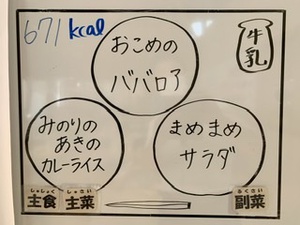 671 kcal
おこめの
ババロア
牛乳
みのりの
あきの
カレーライス
まめまめ
サラダ
しゅしょく
主食
しゅさい
主菜
ふくさい
副菜